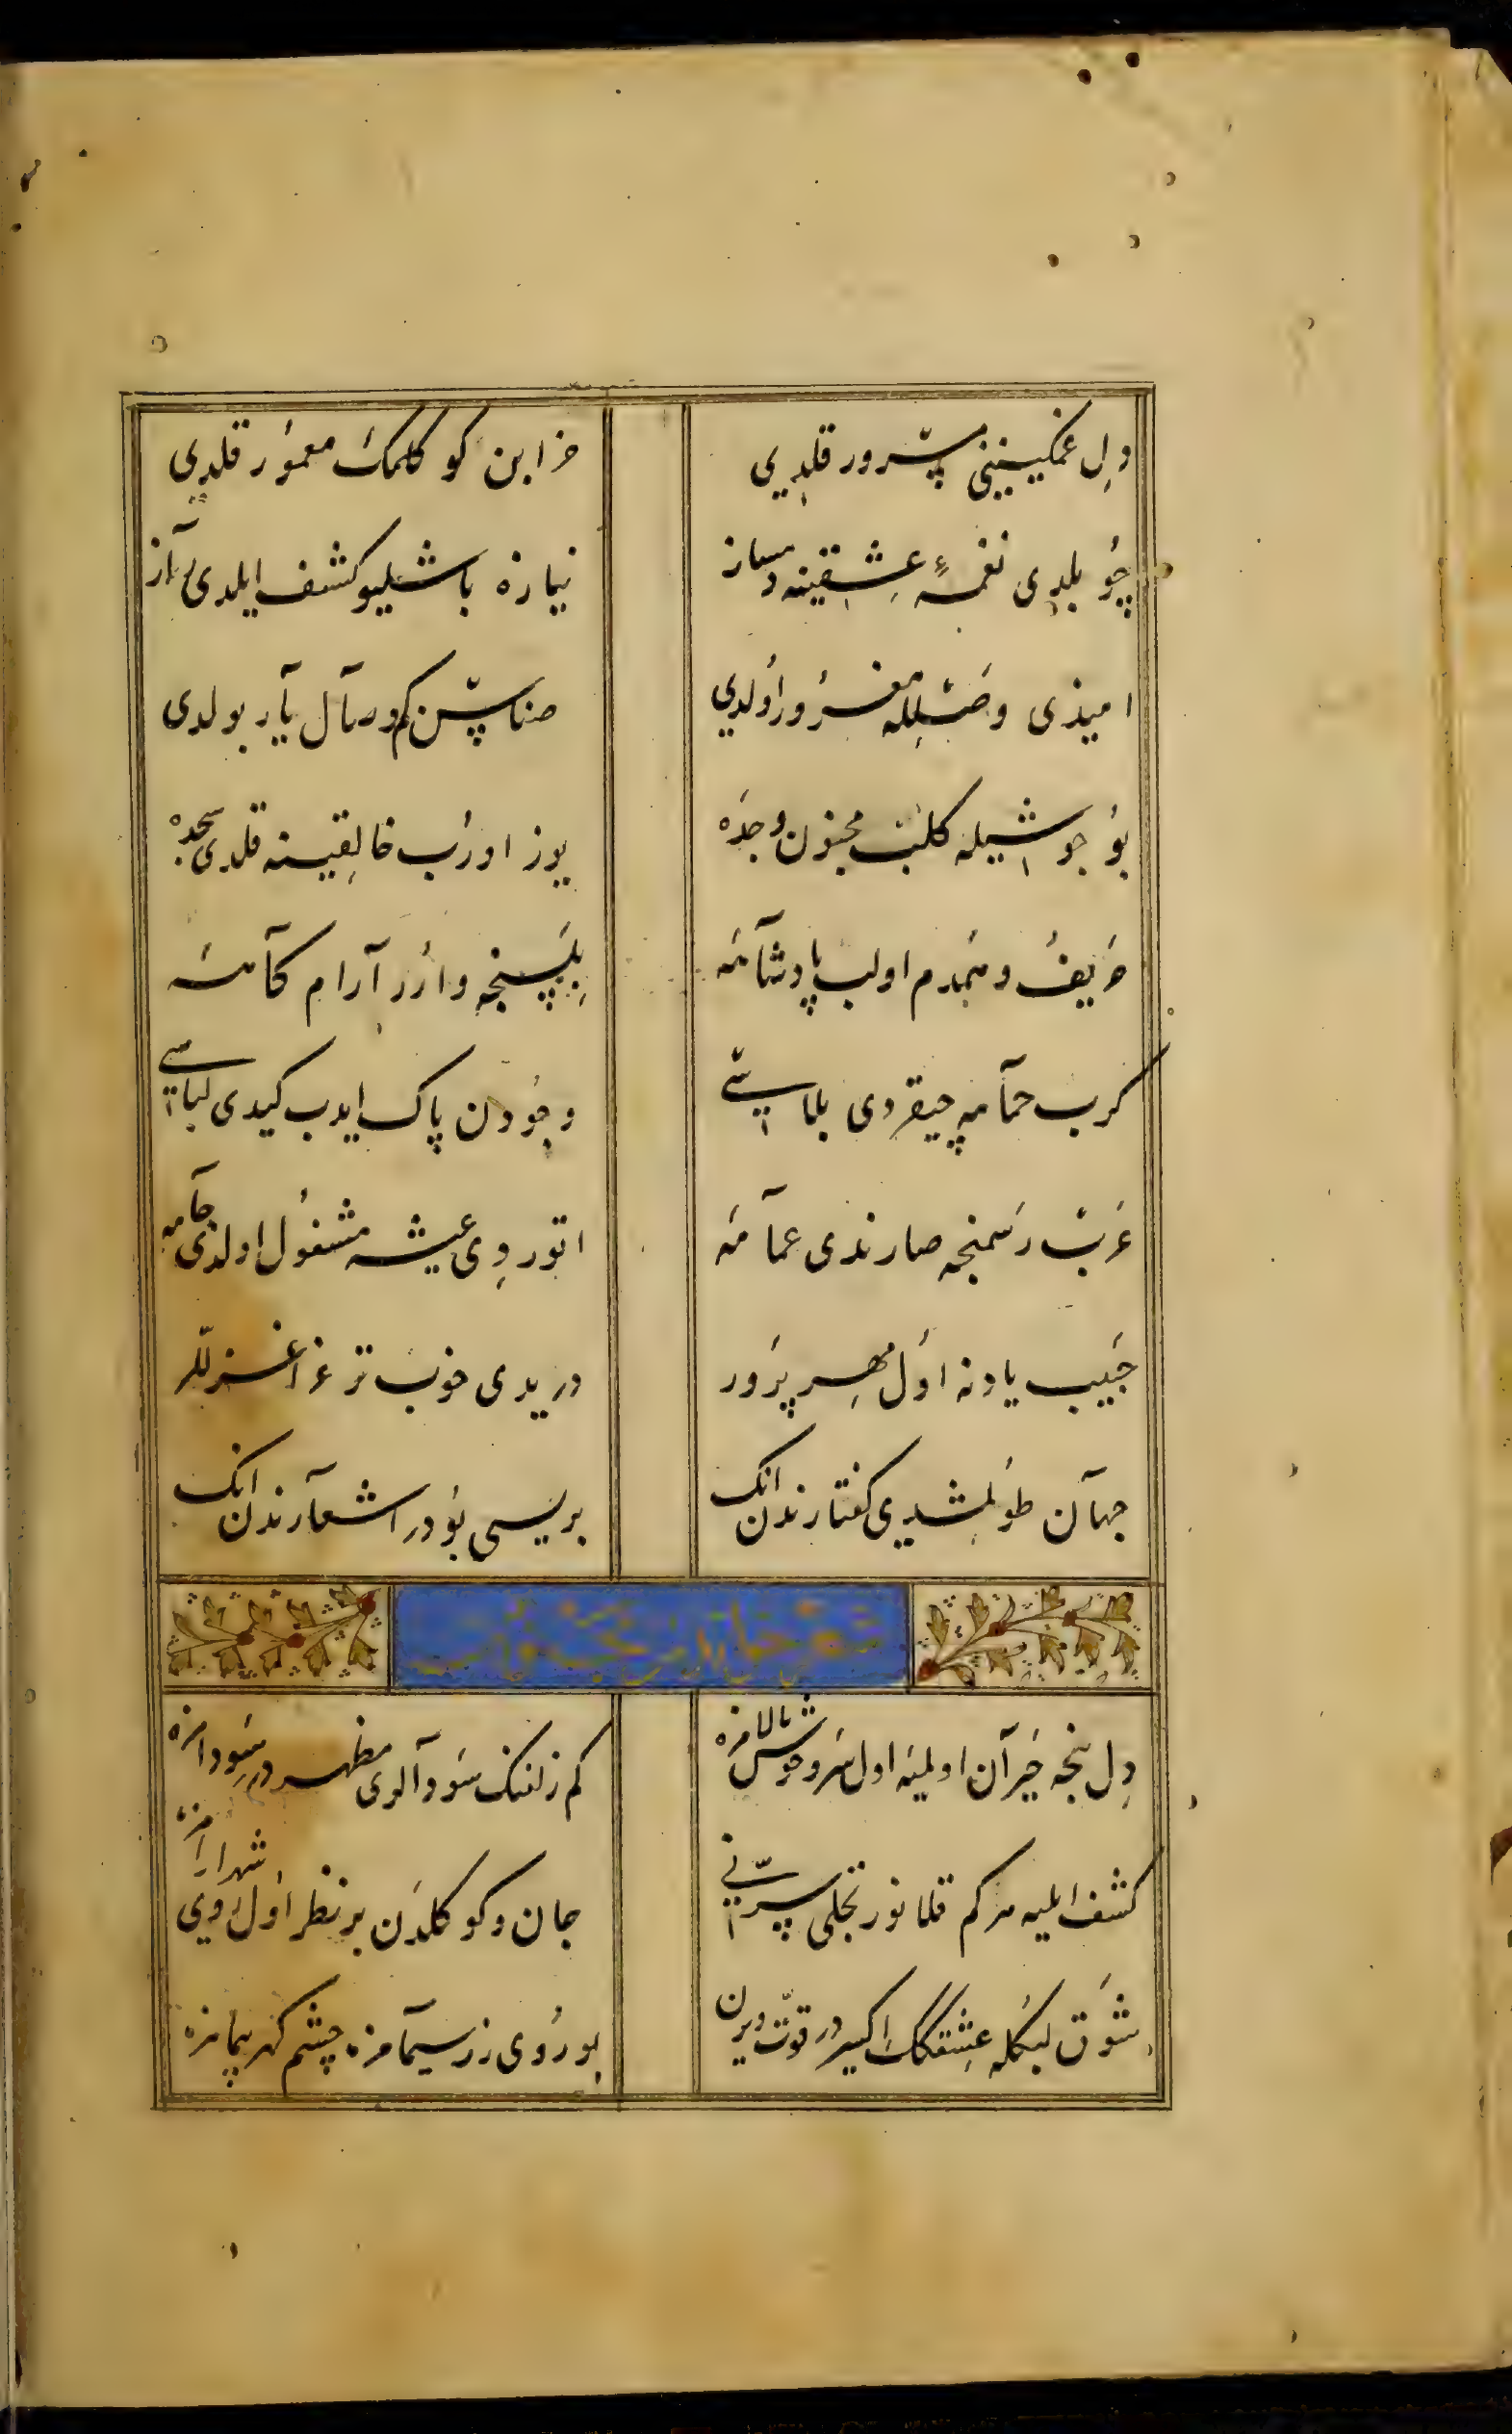 دل غمگینینی مسرور قلدی خرابن کوکلمک معمور قلدی
چو بلدی نغمهٔ عشقینه دمساز نیازه باشلیو کشف ایلدی راز
امیذی وصلله مغرور اولدی صناسن کم ورمال یار بولدی
بو جوشیله کلب مجنون وجده یوز اورب خالقینه قلدی سجده
حریف و همدم اولب پادشاهه بیلسنجه واررآرامکاهه
کرب حمامه چیقردی پلاسی وجودن پاک ایدب کیدی لباسی
عرب رسمنجه صارندی عمامه اتوردی عیشه مشغول اولدی جامه
حبیب یادنه اول مهرپرور دریدی خوب تر غرا غزللر
جهان طولمشدی کفتارندن انک بریسی بودر اشعارندن انک
شعر خواندن مجنون
دل نجه حیران اولمیه اول سرو خوش بالامزه کم زلفنک سودالری مظهردر سودامزه
کشف ایلیه مز کم قلا نور تجلی سرنی جان و کوکلدن بر نظر اول روی شهرارامزه
شوق لبکله عشقکک اکسیردر قوت ویرن بو روی زرسیمامزه چشم کهرپیمامزه